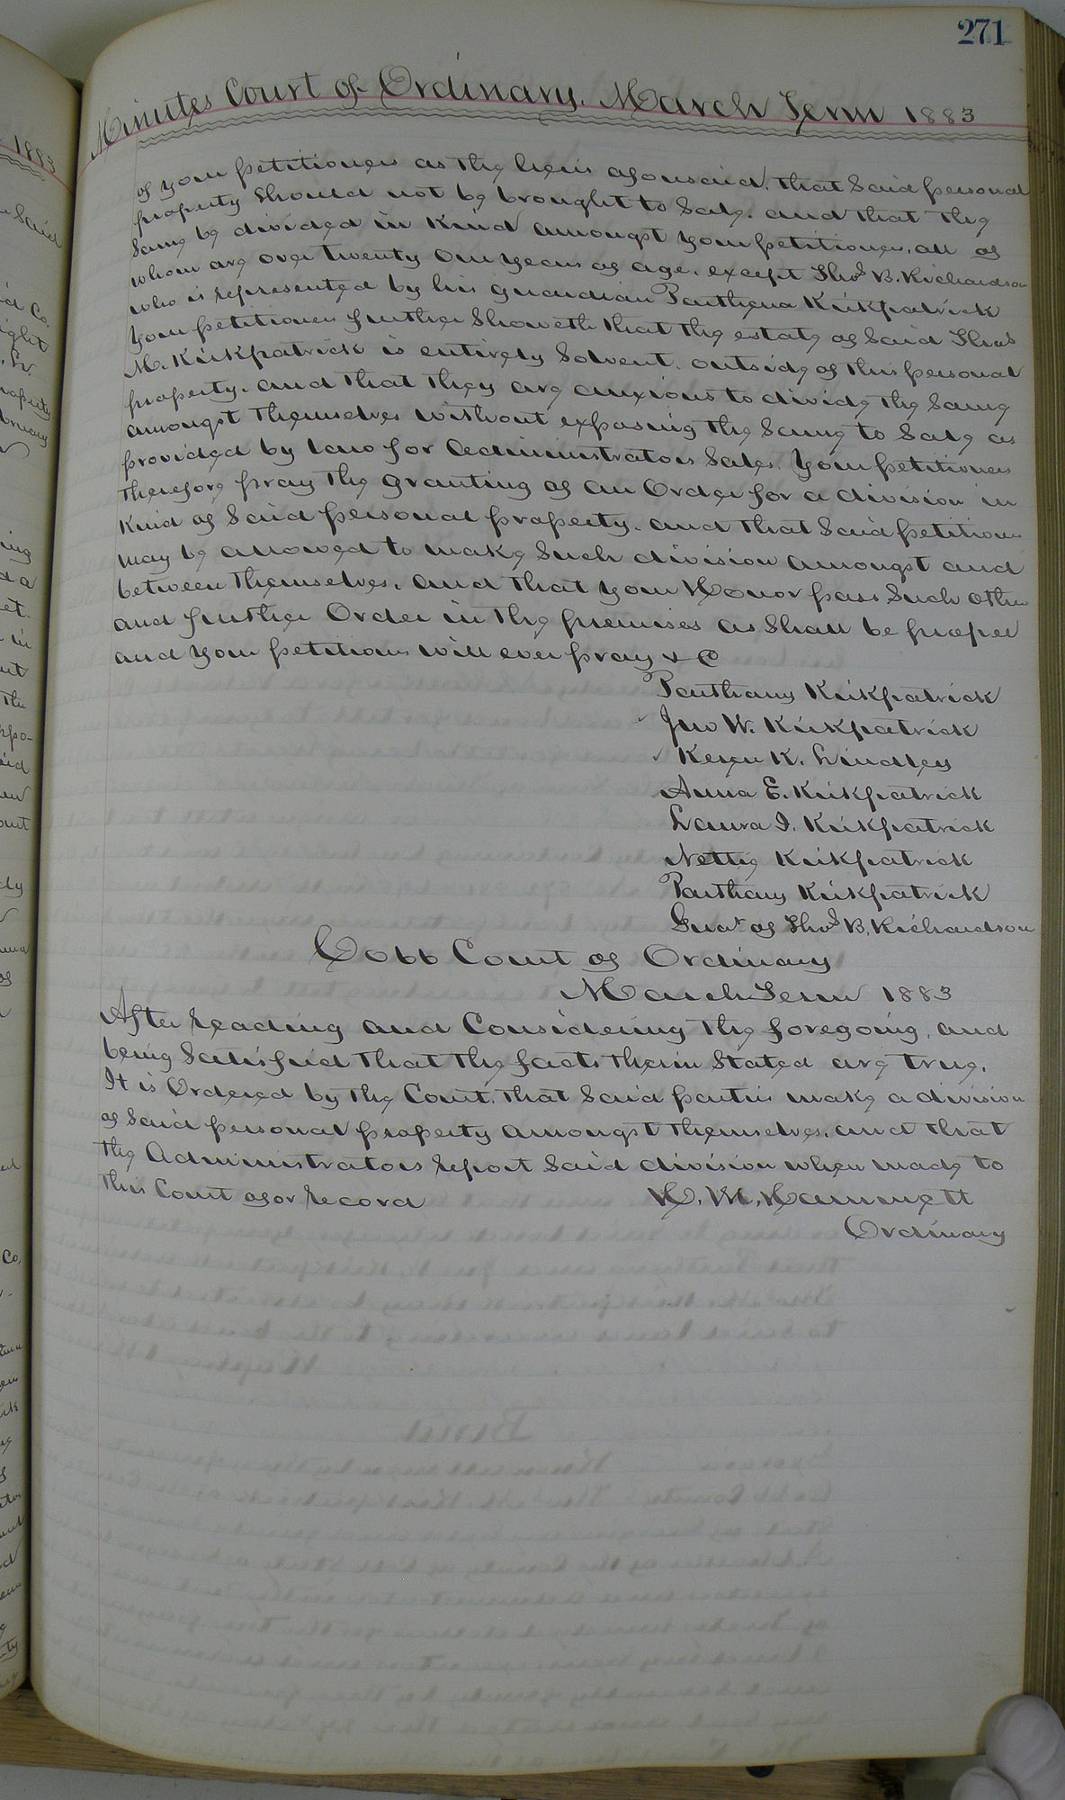 271
Minutes Court of Ordinary, March Term 1883
of your petitioners as the heirs aforesaid, that said personal
property should not be brought to Sale, and that the
Same be divided in Kind amongst your petitioners, all of
whom are over twenty one years of age, except Thos B. Richardson
who is represented by his guardian Parthena Kirkpatrick
Your petitioners further Showeth that the estate of Said Thos
M. Kirkpatrick is entirely Solvent, outside of this personal
property, and that they are anxious to divide the Same
amongst themselves without exposing the Same to Sale as
provided by law for Administrators Sales, Your petitioners
therefore pray the granting of an Order for a division in
Kind of Said personal property, and that Said petitioners
may be allowed to make Such division amongst and
between themselves, and that your Honor pass Such other
and further Order in the premises as Shall be proper
and your petitioners will ever pray & C
Parthany Kirkpatrick
Jno W. Kirkpatrick
K. Lindley
Anna E. Kirkpatrick
Laura I. Kirkpatrick
Netty Kirkpatrick
Parthany Kirkpatrick
Guar of Thos B. Richardson
Cobb Court of Ordinary
March Term 1883
After reading and Considering the foregoing, and
being Satisfied that the facts therein Stated are true,
It is Ordered by the Court, that Said parties make a division
of Said personal property amongst themselves, and that
the Administrators report Said division when made to
this Court as of record H. M. Hammett
Ordinary